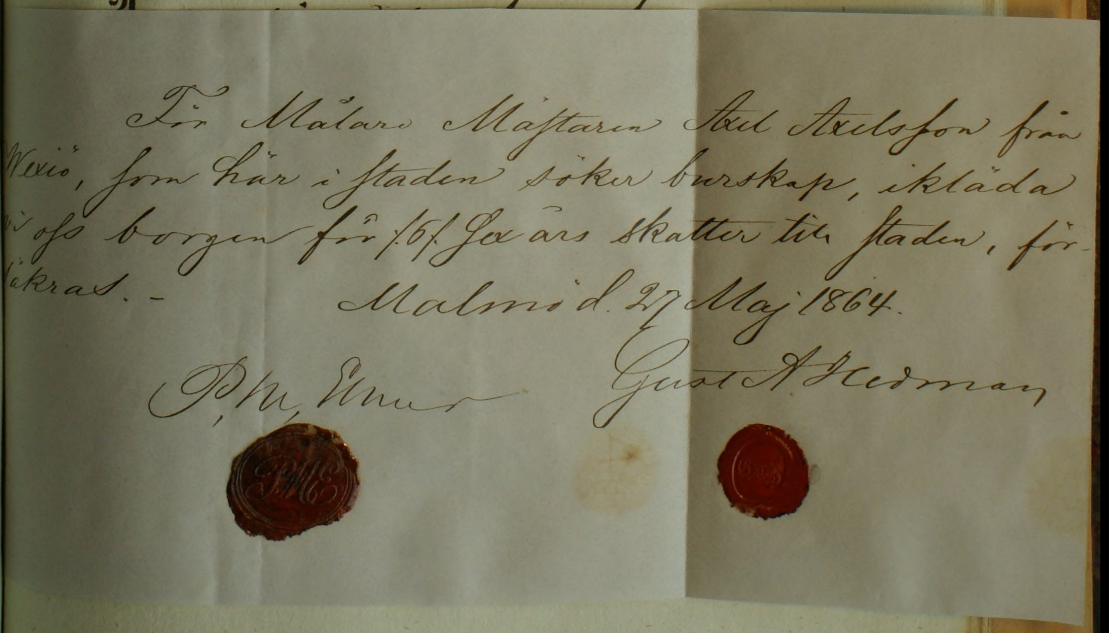 För Målare Mästaren Axel Axelsson från
Wexiö, som här i staden söker burskap, ikläda
vi oss borgen för /:6/: Sex års skatter till staden, för-
säkras. -
Malmö d. 27 Maj 1864.
P. M. Gust A Hedman
PME